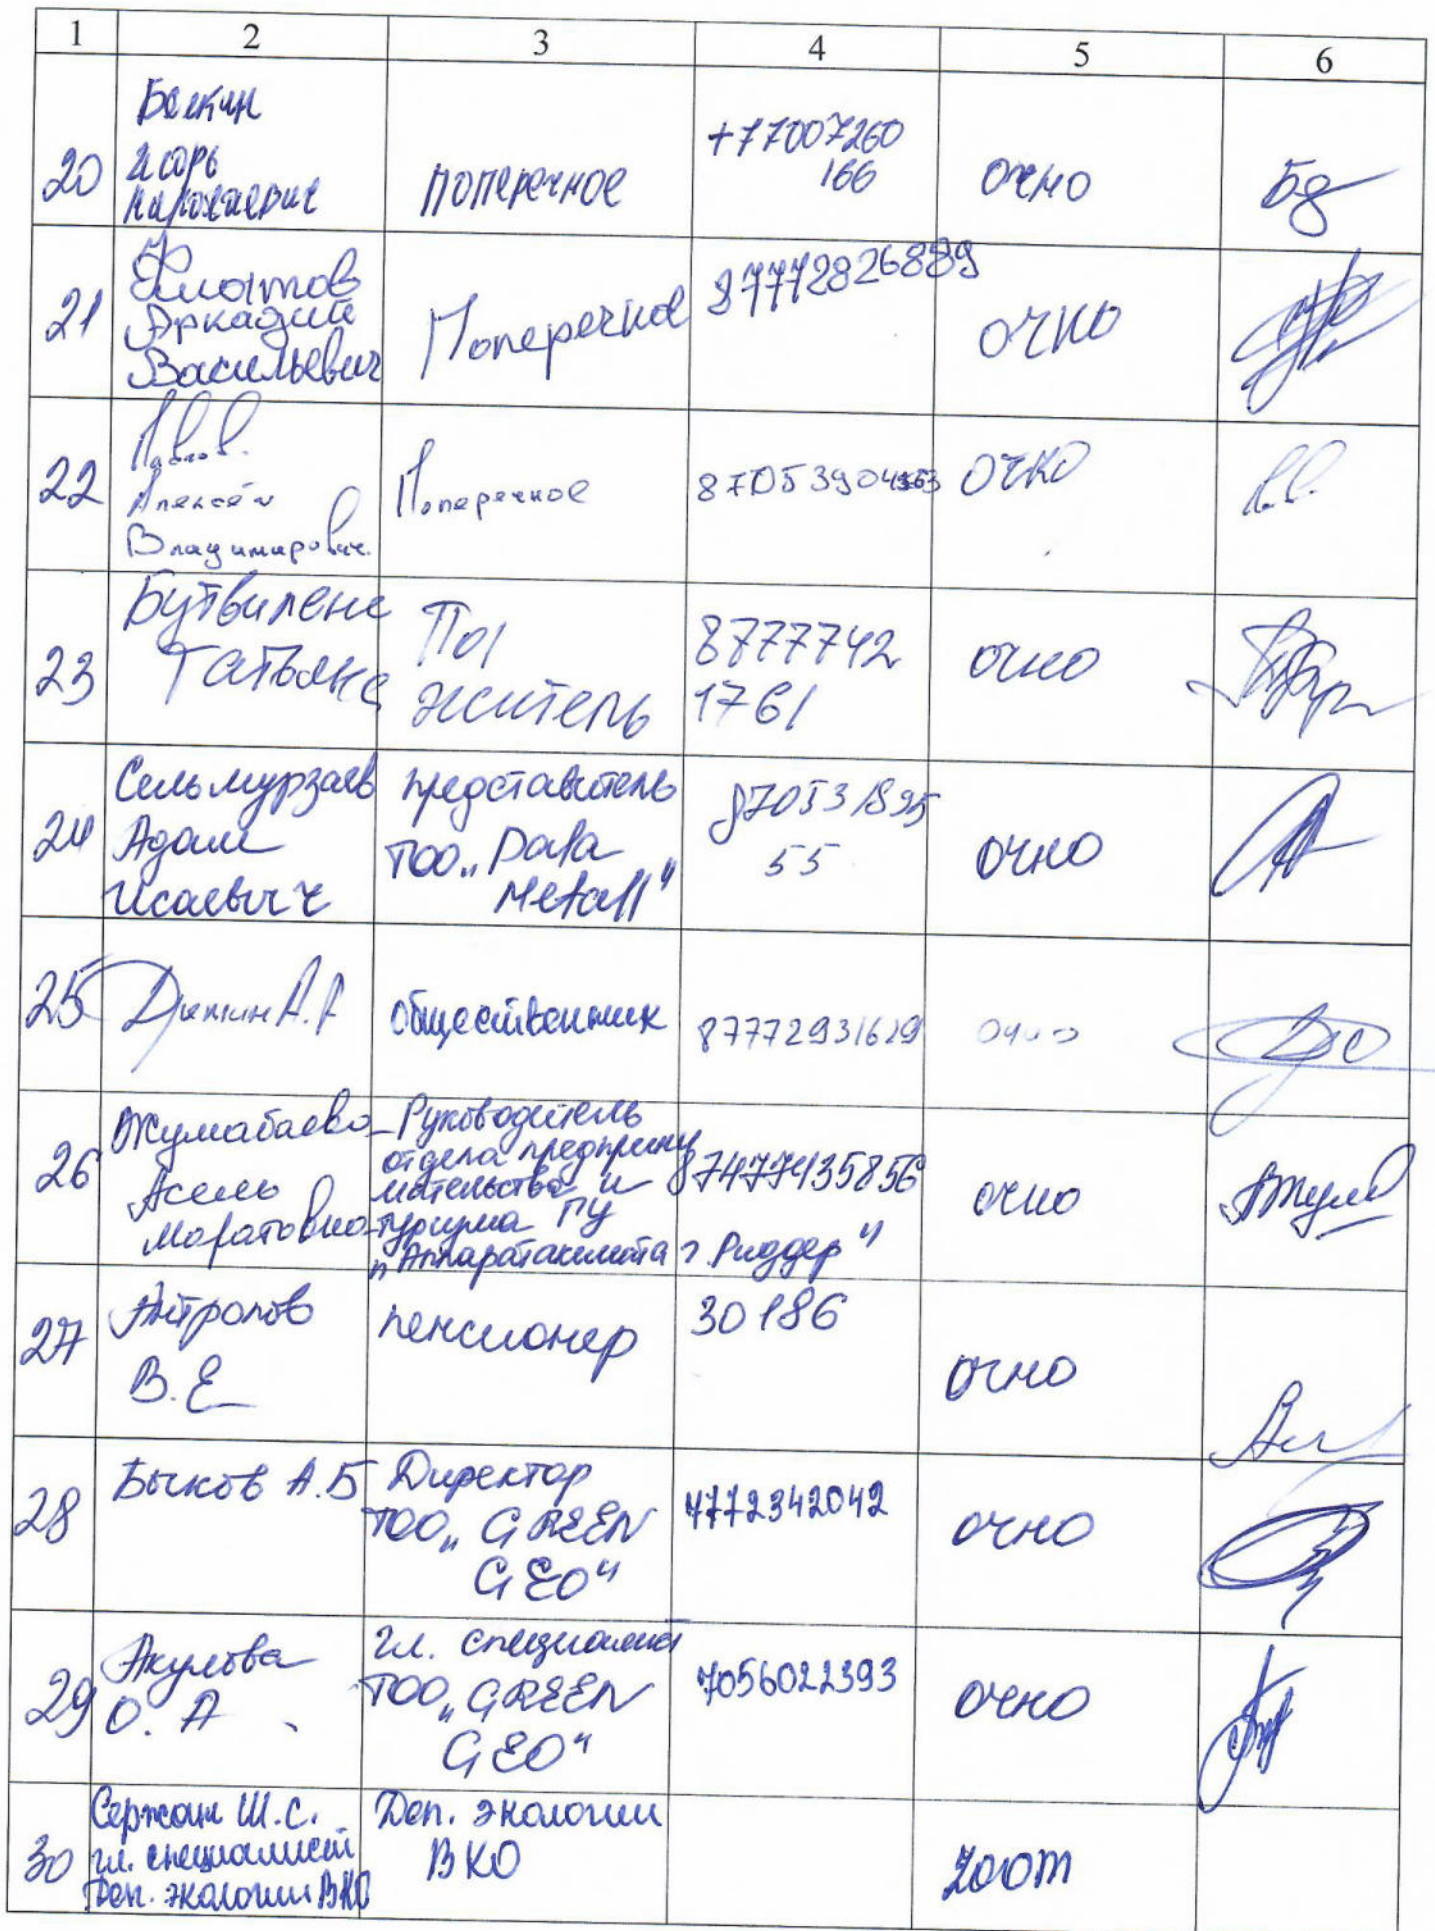 1 2 3 4 5 6
20
Игорь
поперечное
+77007260
166
очно
21
Аркадий
Васильевич
Поперечное
87772826889
очно
22
Павлов
Алексей
Владимирович
Поперечное
очно
23
Бутвилене
Татьяна
житель
8777742
1761
очно
24
Сельмурзаев
Адам
Исаевич
представитель
ТОО „Data
Metall"
870531895
55
очно
25
А.А
общественник
87772931629
очно
26
Жумабаева
Асель
Маратовна
Руководитель
отдела предприни
мательства и
туризма ГУ
„Аппарат акимата г. Риддер"
87477435856
очно
27
Антропов
В.Е
пенсионер
30186
очно
28
Бычков А.Б
Директор
ТОО „GREEN
GEO"
7772342042
очно
29
Акулова
О. А
гл. специалист
ТОО „GREEN
GEO"
7056022393
очно
30
Сержан Ш.С.
гл. специалист
Деп. экологии ВКО
Деп. экологии
ВКО
zoom